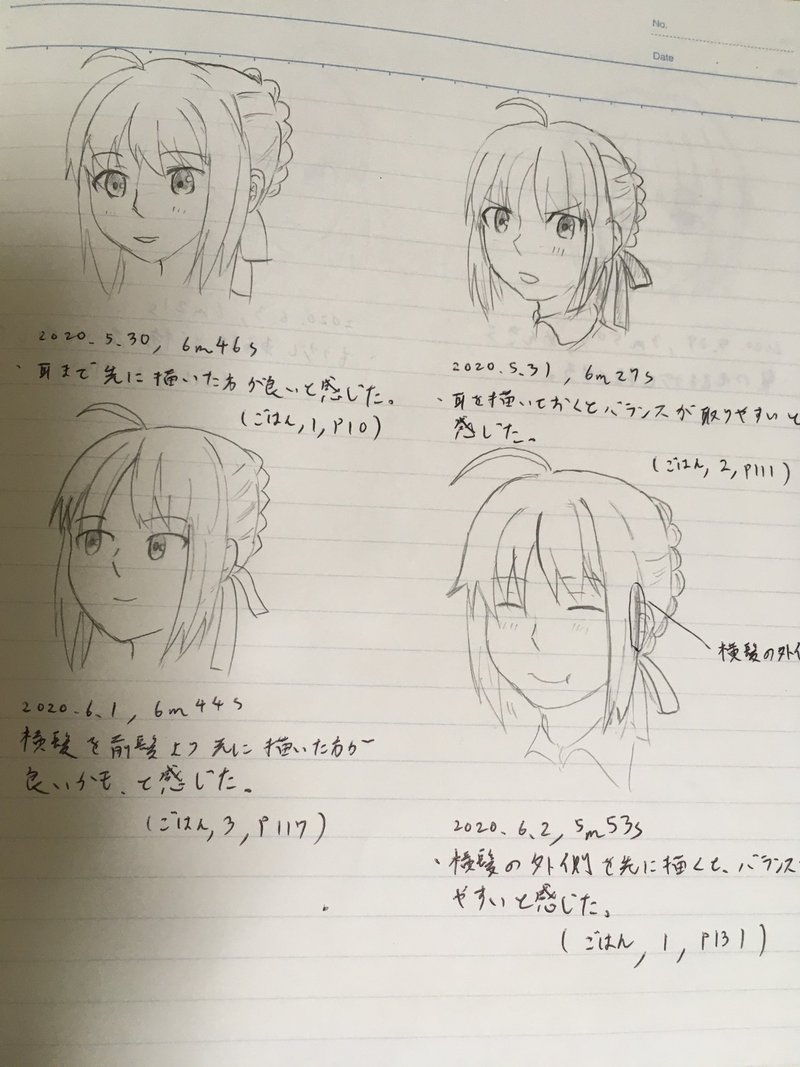 No.
Date
2020.5.30, 6m46s
・耳まで先に描いた方が良いと感じた。
(ごはん, 1, P10)
2020.5.31, 6m27s
・耳を描いておくとバランスが取りやすいと
感じた。
(ごはん, 2, P111)
2020.6.1, 6m44s
横髪を前髪より先に描いた方が
良いかも、と感じた。
(ごはん, 3, P117)
横髪の外側
2020.6.2, 5m53s
・横髪の外側を先に描くと、バランス
やすいと感じた。
(ごはん, 1, P131)